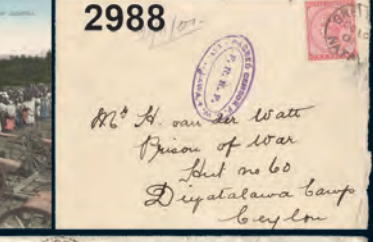 2988
PASSED CENSOR
P. H. R. P.
Mr H. van der Watt
Prison of War
Hut no 60
Diyatalawa Camp
Ceylon